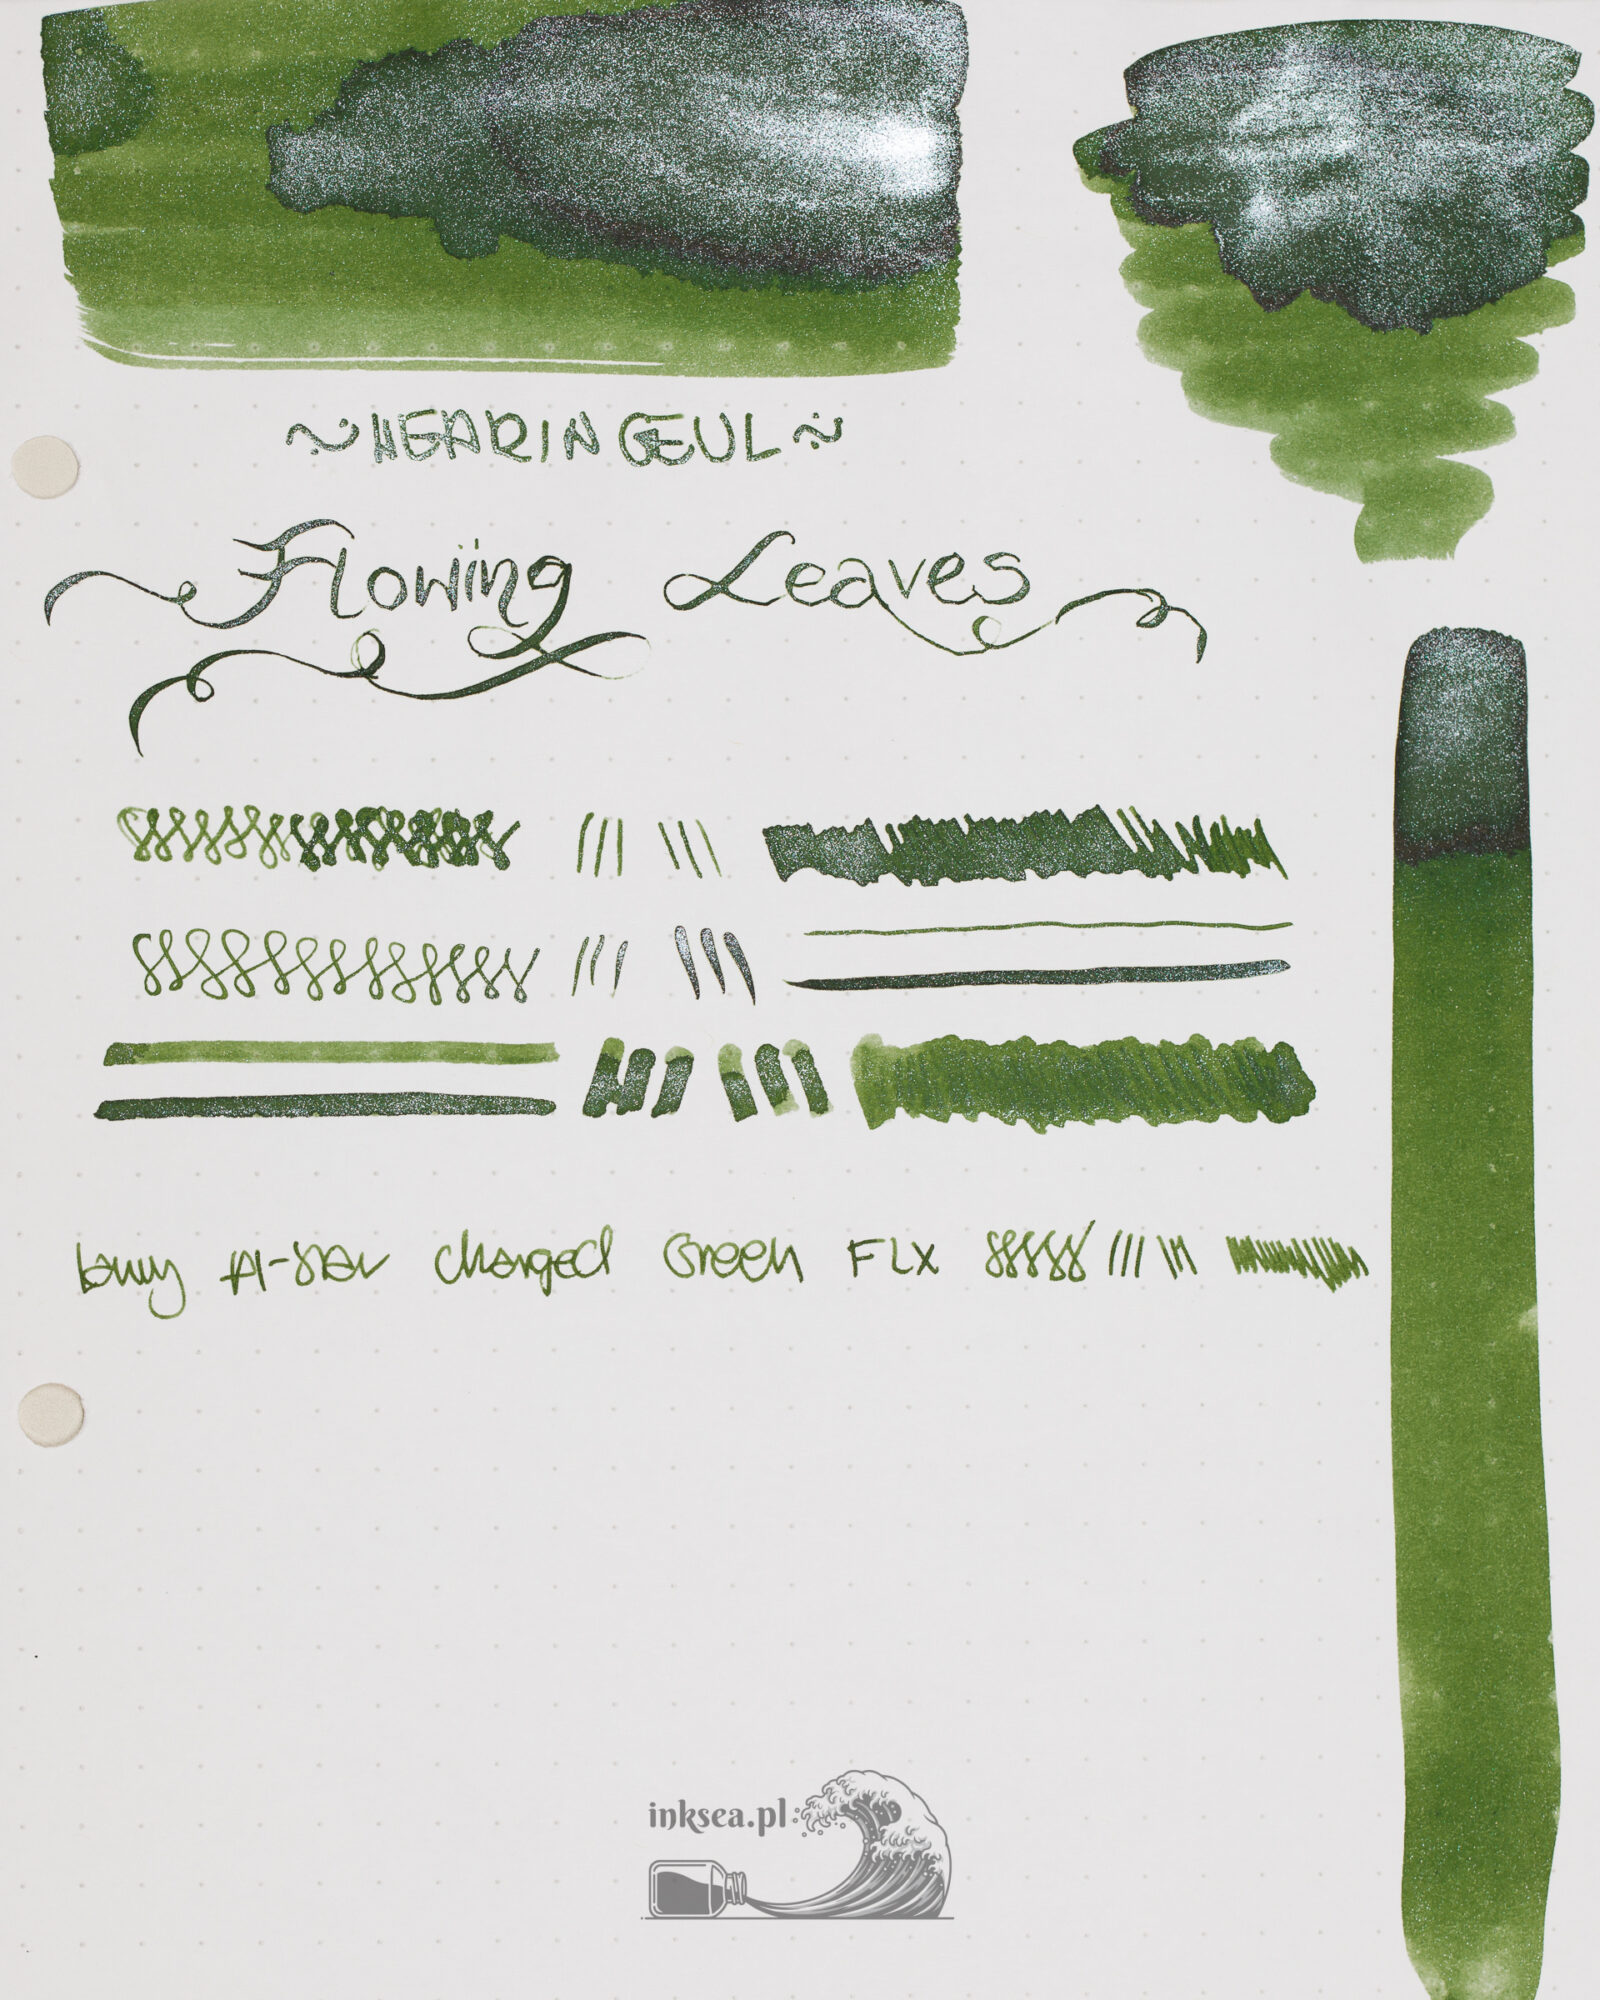 ~HEARIN GEUL~
Flowing Leaves
Lamy Al-Star Charged Green FLX
inksea.pl